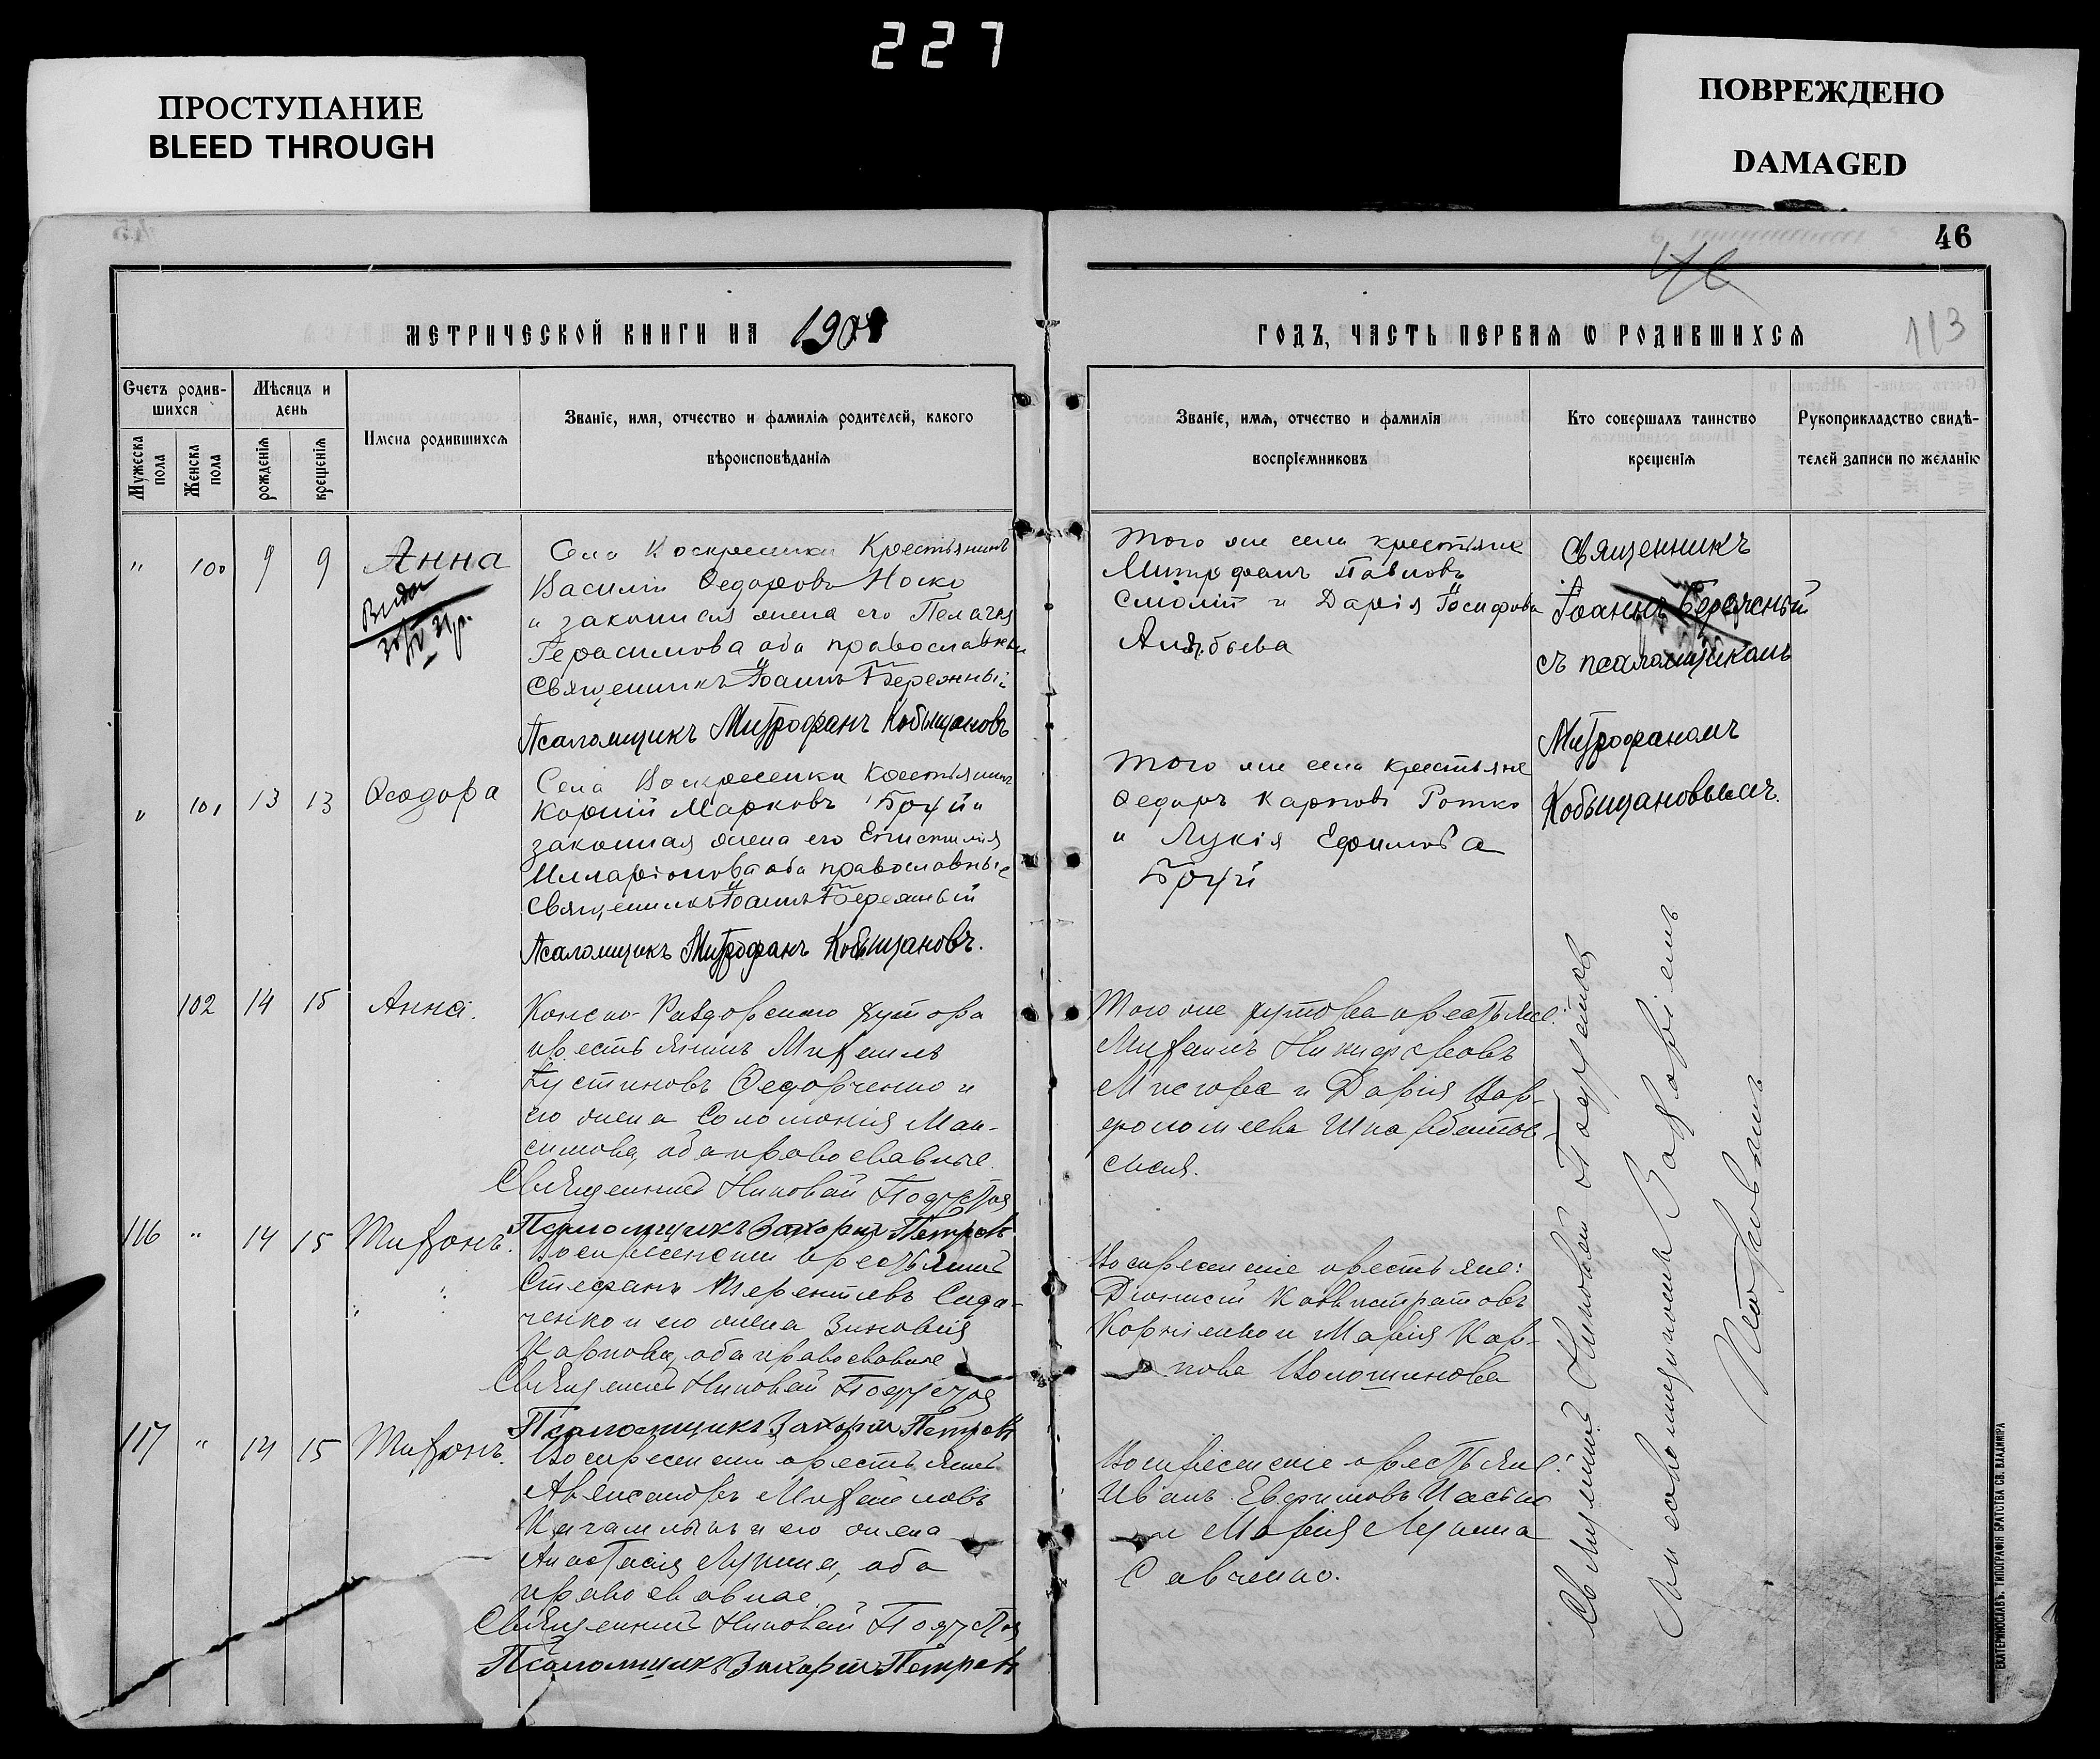 227
ПРОСТУПАНИЕ
BLEED THROUGH
ПОВРЕЖДЕНО
DAMAGED
46
113
МЕТРИЧЕСКОЙ КНИГИ НА 190
Счетъ родив-
шихся
Мужеска пола
Женска пола
Мѣсяцъ и
день
рожденія
крещенія
Имена родившихся
Званіе, имя, отчество и фамилія родителей, какого
вѣроисповѣданія
" 100 9 9 Анна
Села Воскресенки Крестьянинъ
Василій Федоровъ Носко
и законная жена его Пелагія
Герасимова оба православные
Священникъ Іоаннъ Бережный
Псаломщикъ Митрофанъ Кобыщановъ
" 101 13 13 Ѳеодора
Села Воскресенки Крестьянинъ
Корній Марковъ Бруй и
законная жена его Епистимія
Илларіонова оба православные
Священникъ Іоаннъ Бережный
Псаломщикъ Митрофанъ Кобыщановъ.
102 14 15 Анна.
Конско-Раздорскаго хутора
крестьянинъ Михаилъ
Іустиновъ Ѳедорченко и
его жена Соломонія Мак-
симова, оба православные.
Священникъ Николай
Псаломщикъ Захарій Петровъ
116 " 14 15 Тихонъ.
Воскресенскій крестьянинъ
Стефанъ Терентіевъ Сида-
ченко и его жена Зиновія
Карпова, оба православные
Священникъ Николай
Псаломщикъ Захарій Петровъ
117 " 14 15 Тихонъ.
Воскресенскій крестьянинъ
Александръ Михайловъ
и его жена
Анастасія Лукина, оба
православные.
Священникъ Николай
Псаломщикъ Захарій Петровъ
ГОДЪ, ЧАСТЬ ПЕРВАЯ Ѡ РОДИВШИХСЯ
Званіе, имя, отчество и фамилія
воспріемниковъ
Кто совершалъ таинство
крещенія
Рукоприкладство свидѣ-
телей записи по желанію
Того же села крестьяне
Митрофанъ Павловъ
Смолій и Дарія Іосифова
Того же села крестьяне
Федоръ Карповъ Ротко
и Лукія Ефимова
Бруй
Того же хутора крестьяне:
Михаилъ Никифоровъ
и Дарія Вар-
фоломеева
Воскресенскіе крестьяне:
Діонисій Каллистратовъ
Корніенко и Марія Кар-
пова Волошинова
Воскресенскіе крестьяне:
Иванъ Евфимовъ
и Марія Лукина
Савченко.
Священникъ
Іоаннъ Бережный
съ псаломщикомъ
Митрофаномъ
Кобыщановымъ.
Священникъ Николай
Псаломщикомъ Захаріемъ
Петровымъ
ЕКАТЕРИНОСЛАВЪ. ТИПОГРАФІЯ БРАТСТВА СВ. ВЛАДИМІРА